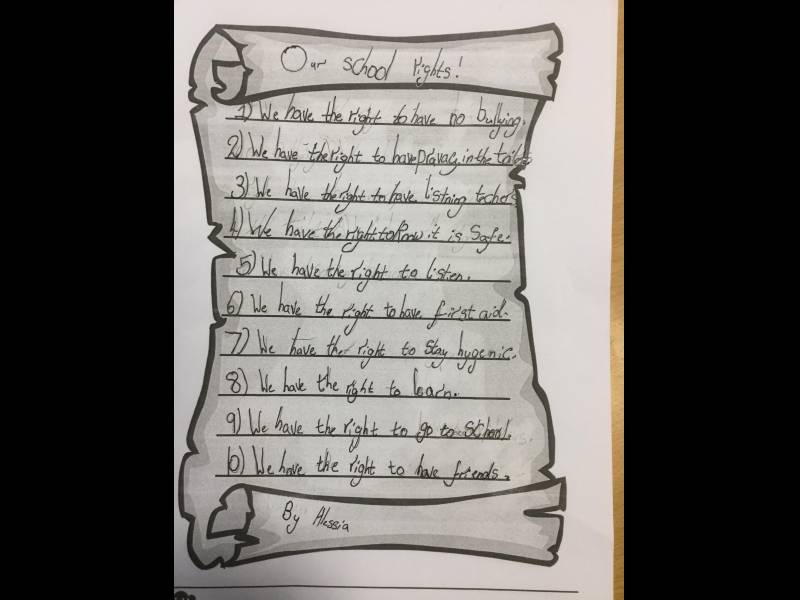 Our school rights!
1) We have the right to have no bullying.
2) We have the right to have pravacy in the toilets
3) We have the right to have listning techers
4) We have the right to know it is safe.
5) We have the right to listen.
6) We have the right to have first aid.
7) We have the right to stay hygenic.
8) We have the right to learn.
9) We have the right to go to school.
10) We have the right to have friends.
By Alessia